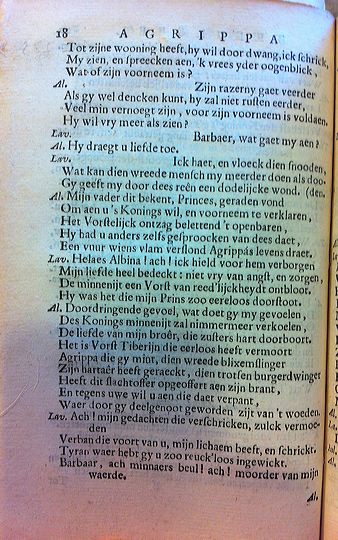 18 AGRIPPA
Tot zijne wooning heeft, hy wil door dwang, ick schrick,
My zien, en spreecken aen, 'k vrees yder oogenblick,
Wat of zijn voorneem is?
Al. Zijn razerny gaet veerder
Als gy wel dencken kunt, hy zal niet rusten eerder,
Veel min vernoegt zijn, voor zijn voorneem is voldaen.
Hy wil vry meer als zien?
Lav. Barbaer, wat gaet my aen?
Al. Hy draegt u liefde toe.
Lav. Ick haet, en vloeck dien snooden,
Wat kan dien wreede mensch my meerder doen als doo-
Gy geeft my door dees reên een dodelijcke wond. (den.
Al. Mijn vader dit bekent, Princes, geraden vond
Om aen u 's Konings wil, en voorneem te verklaren,
Het Vorstelijck ontzag belettend 't openbaren,
Hy had u anders zelfs gesproocken van dees daet,
Een vuur wiens vlam verslond Agrippás levens draet.
Lav. Helaes Albina! ach! ick hield voor hem verborgen
Mijn liefde heel bedeckt: niet vry van angst, en zorgen,
De minnenijt een Vorst van reed'lijckheydt ontbloot.
Hy was het die mijn Prins zoo eereloos doorstoot.
Al. Doordringende gevoel, wat doet gy my gevoelen,
Des Konings minnenijt zal nimmermeer verkoelen,
De liefde van mijn broêr, die zusters hart doorboort.
Het is Vorst Tiberijn die eerloos heeft vermoort
Agrippa die gy mint, dien wreede blixemslinger
Zijn hartaêr heeft geraeckt, dien trotsen burgerdwinger
Heeft dit slachtoffer opgeoffert aen zijn brant,
En tegens uwe wil u aen die daet verpant,
Waer door gy deelgenoot geworden zijt van 't woeden.
Lav. Ach! mijn gedachten die verschricken, zulck vermoe-
den
Verban die voort van u, mijn lichaem beeft, en schrickt.
Tyran waer hebt gy u zoo reuck'loos ingewickt.
Barbaar, ach minnaers beul! ach! moorder van mijn
waerde.
Al.